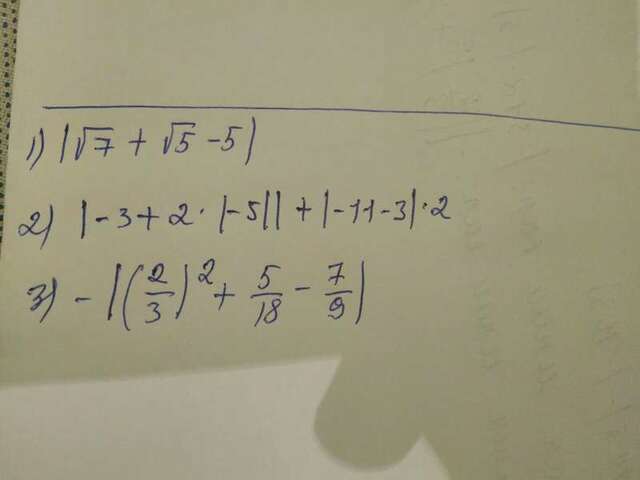 1) |√7 + √5 - 5|
2) |-3 + 2 · |-5|| + |-11-3| · 2
3) -|(2/3)² + 5/18 - 7/9|